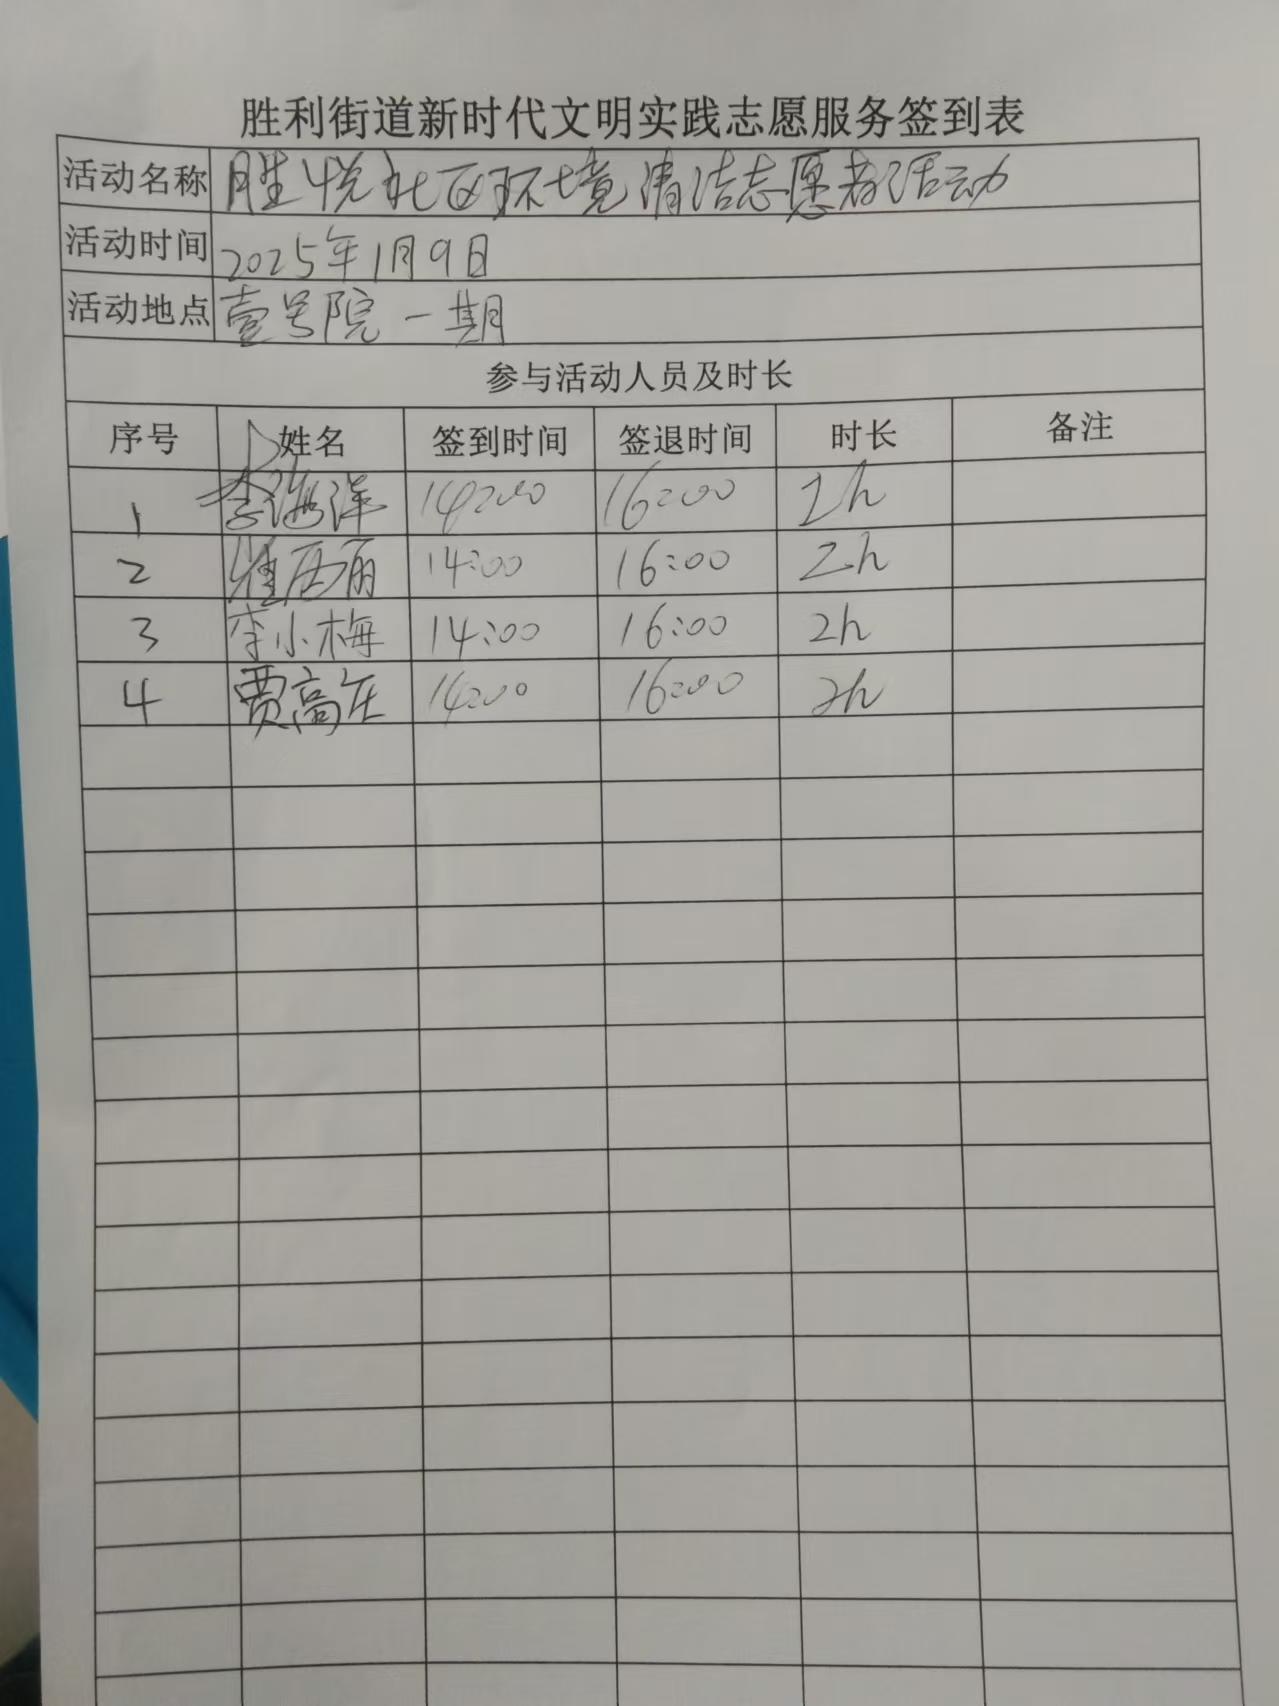 胜利街道新时代文明实践志愿服务签到表
活动名称 胜悦社区环境清洁志愿者活动
活动时间 2025年1月9日
活动地点 壹号院一期
参与活动人员及时长
序号 姓名 签到时间 签退时间 时长 备注
1 李海洋 14:00 16:00 2h
2 14:00 16:00 2h
3 李小梅 14:00 16:00 2h
4 贾高 14:00 16:00 2h